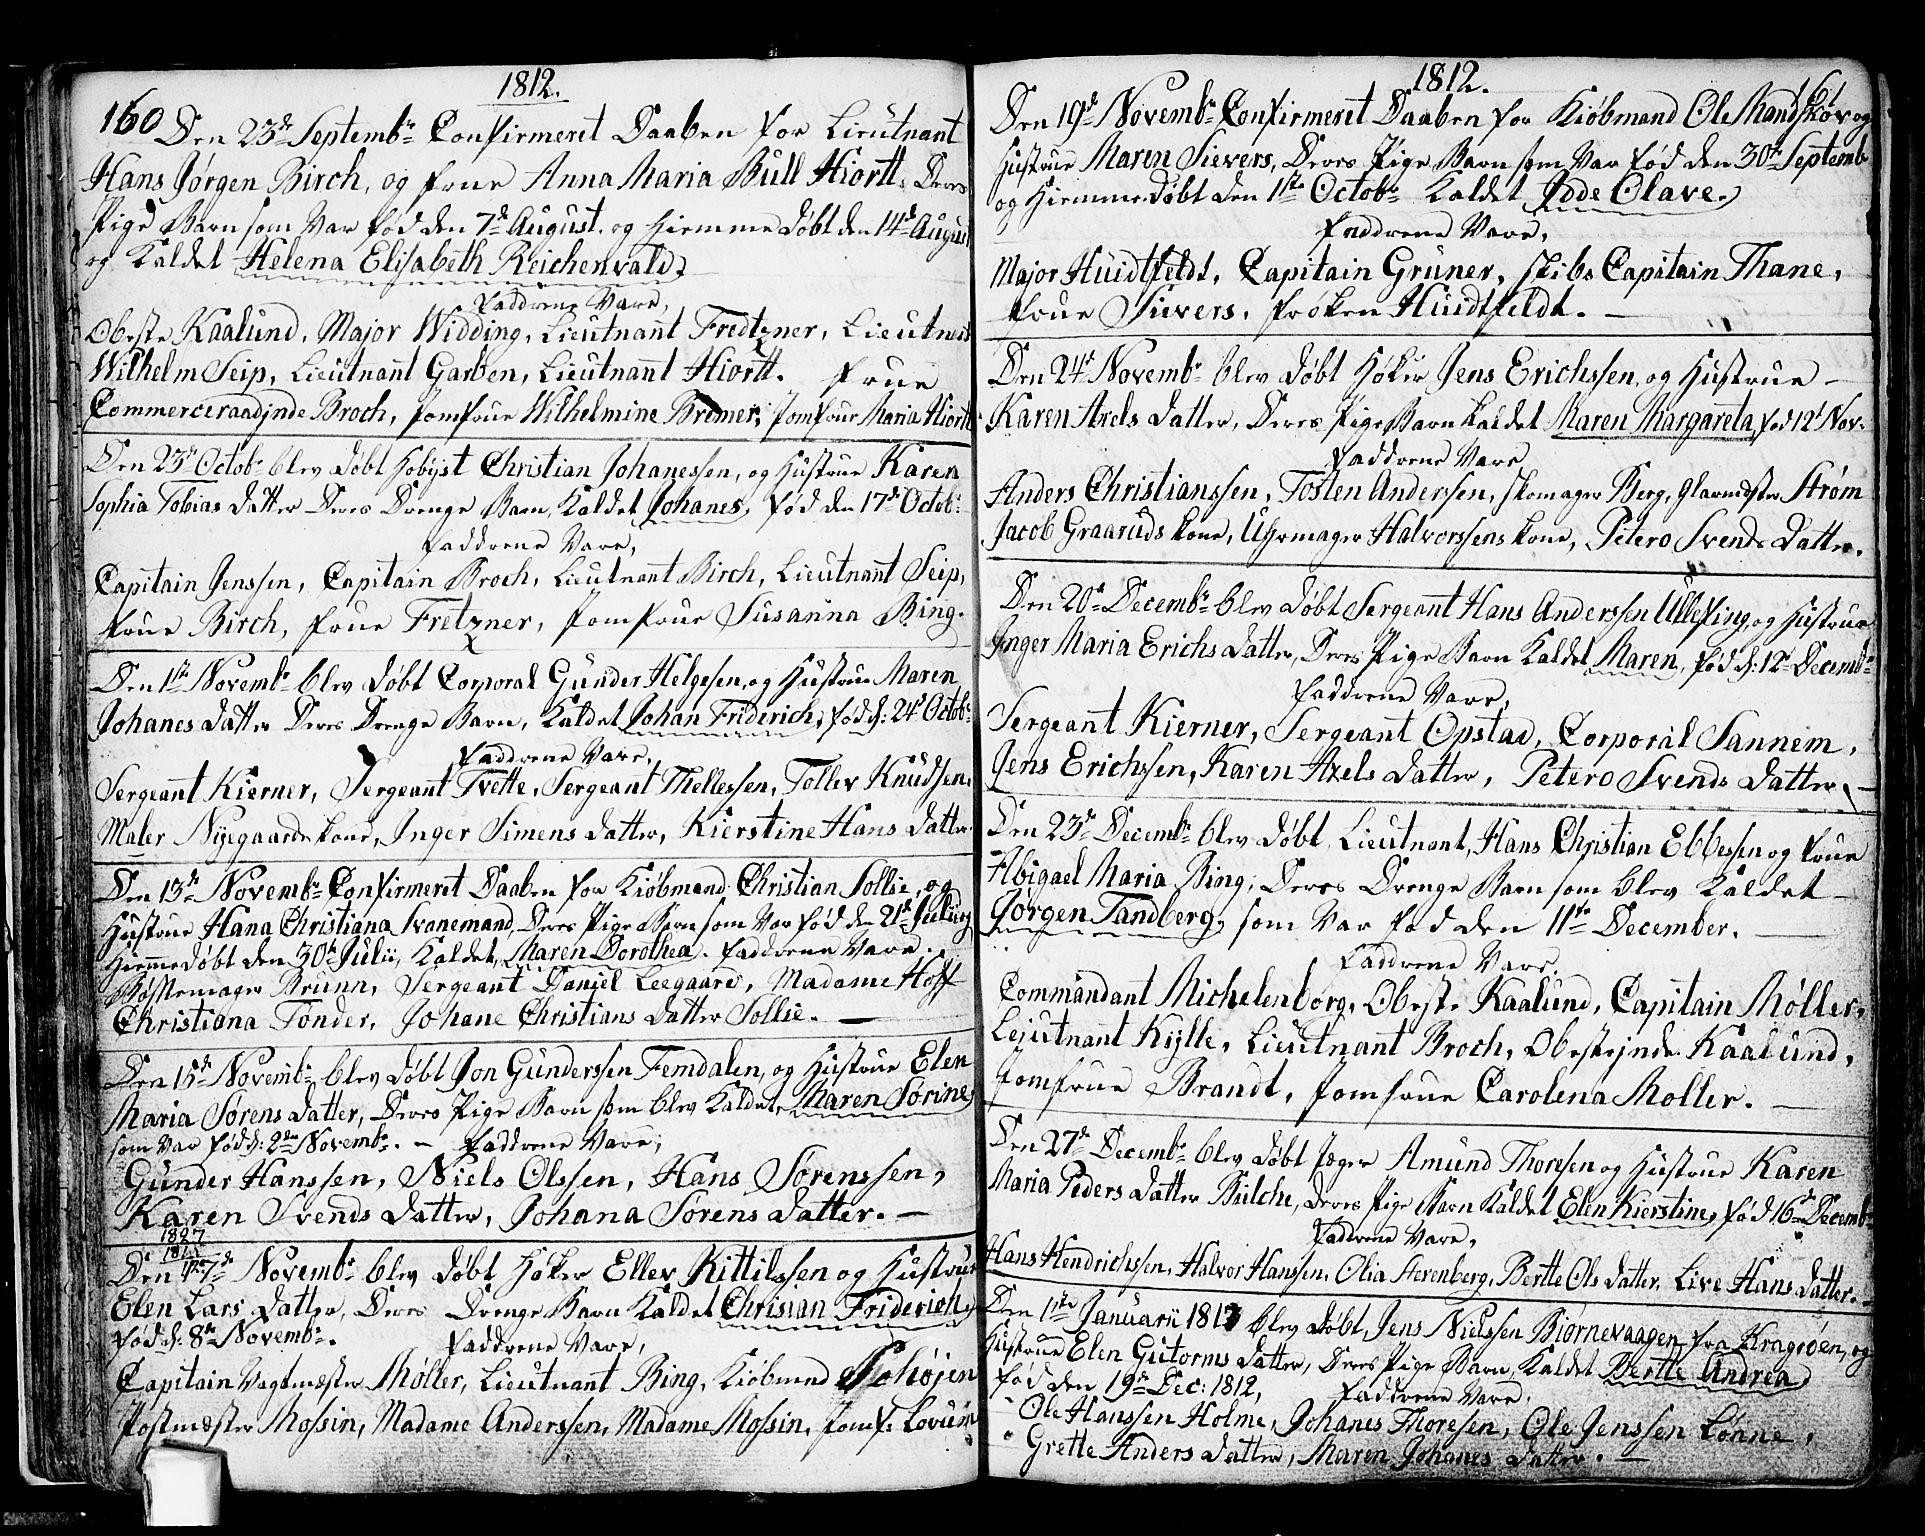 1812.
160 Den 23de Septembr Confirmeret Daaben for Lieutnant
Hans Jørgen Birch, og frue Anna Maria Bull Hiortt, Deres
Pige Barn som Var fød den 7de August, og hiemme døbt den 14de August
og Kaldet Helena Elisabeth Reichenvald,
Faddrene Vare,
Obeste Kaalund, Major Widding, Lieutnant Fredtzner, Lieutnant
Wilhelm Seip, Lieutnant Garben, Lieutnant Hiortt. frue
Commerceraadinde Broch, Jomfrue Wilhelmine Bremer, Jomfrue Maria Hiortt
Den 23de Octobr blev døbt Hobijst Christian Johanessen, og Hustrue Karen
Sophia Tobias datter Deres Drenge Barn, Kaldet Johanes, fød den 17de Octobr
Faddrene Vare,
Capitain Jenssen, Capitain Broch, Lieutnant Birch, Lieutnant Seip,
frue Birch, frue Fretzner, Jomfrue Susanna Bing.
Den 1te Novembr blev døbt Corporal Gunder Helgesen, og Hustrue Maren
Johanes datter Deres Drenge Barn, Kaldet Johan Friderich, fød d: 24de Octobr
Faddrene Vare,
Sergeant Kierner, Sergeant Tvette, Sergeant Thellessen, Tollev Knudsen,
Maler Nyegaards kone, Inger Simens datter, Kierstine Hans datter.
Den 13de Novembr Confirmeret Daaben for Kiøbmand Christian Sollie, og
Hustrue Hana Christiana Svanemand, Deres Pige Barn som Var fød den 21de Julii og
Hiemme døbt den 30de Julii, Kaldet, Maren Dorothea. Faddrene Vare.
Bøssemager Brunn, Sergeant Daniel Leegaard, Madame Hoff
Christiana Tonder, Johane Christians datter Sollie.
Den 15de Novembr blev døbt Jon Gunderssen Femdalen, og Hustrue Elen
Maria Sørens datter, Deres Pige Barn som blev Kaldet, Maren Sorine,
som Var fød d: 2den Novembr. Faddrene Vare,
Gunder Hanssen, Niels Olssen, Hans Sørenssen,
Karen Svends datter, Johana Sørens datter.
1827
Den 17de Novembr blev døbt Høker Ellev Kittilssen og Hustrue
Elen Lars datter, Deres Drenge Barn Kaldet Chrisian Friderich,
fød d: 8de Novembr. Faddrene Vare,
Capitain Vagtmester Møller, Lieutnant Bing, Kiøbmand Schøjen
Postmæster Mossin, Madame Anderssen, Madame Mossin, Jomf:
1812.
161
Den 19de Novembr Confirmeret Daaben for Kiøbmand Ole Mandskov og
Hustrue Maren Sievers, Deres Pige Barn som Var fød den 30te Septembr
og Hiemme døbt den 1ste Octobr Kaldet Jdde Olave.
Faddrene Vare,
Major Huidtfeldt, Capitain Gruner, Skibs Capitain Thane,
frue Sievers, frøken Huidtfeldt.
Den 24de Novembr blev døbt Høker Jens Erichssen, og Hustrue
Karen Axels datter, Deres Pige Barn kaldet Maren Margareta, fød 12te Nov.
Faddrene Vare
Anders Christianssen, Tosten Anderssen, Skomager Berg, Glarmester Strøm
Jacob Graaruds kone, Uhrmager Halvorssens kone, Petero Svends datter.
Den 20de Decembr blev døbt Sergeant Hans Anderssen Ullefing, og Hustrue
Inger Maria Erichs datter, Deres Pige Barn Kaldet Maren, fød d: 12te Decembr
Faddrene Vare,
Sergeant Kierner, Sergeant Opstad, Corporal Sannem,
Jens Erichssen, Karen Axels datter, Petero Svends datter,
Den 23de Decembr blev døbt Lieutnant, Hans Christian Ebbessen og frue
Abigael Maria Bing, Deres Drenge Barn som blev Kaldet
Jorgen Tandberg, som Var fød den 11te December.
Faddrene Vare.
Commandant Michelenborg, Obeste Kaalund, Capitain Møller,
Leiutnant Kylle, Lieutnant Broch, Obestinde Kaalund,
Jomfrue Brandt, Jomfrue Carolena Moller.
Den 27de Decembr blev døbt Jæger Amund Thoresen og Hustrue Karen
Maria Peders datter Bülche, deres Pige Barn Kaldet Elen Kierstine, fød 16de Decembr
Faddrene Vare,
Hans Hendrichssen, Halvor Hanssen, Olia Sterenberg, Berthe Ols datter, Live Hans datter.
Den 1ste Januarii 1813 blev døbt, Jens Nielssen Bjørnevaagen, fra Kragrøen, og
Hustrue Elen Gutorms datter, Deres Pige Barn, Kaldet Berthe Andrea
fød den 19de Dec: 1812, Faddrene Vare,
Ole Hanssen Holme, Johanes Thoresen, Ole Jenssen Lønne,
Grethe Anders datter, Maren Johanes datter.